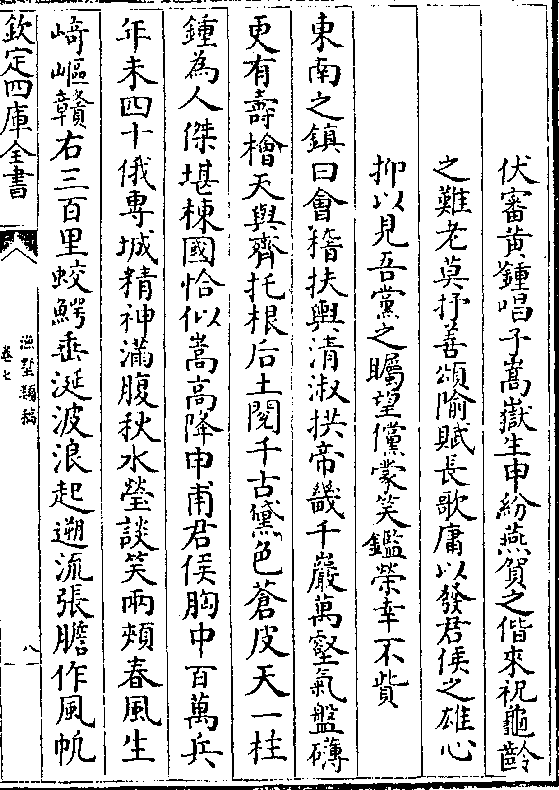 伏審黄鍾唱子嵩嶽生申紛燕賀之偕來祝龜齡
之難老莫抒善頌隃賦長歌庸以發君侯之雄心
抑以見吾黨之矚望儻蒙笑鑑榮幸不貲
東南之鎮曰會稽扶輿清淑拱帝畿千巖萬壑氣盤礴
更有壽檜天與齊托根后土閲千古黛色蒼皮天一柱
鍾為人傑堪棟國恰似嵩高降申甫君侯胸中百萬兵
年未四十俄專城精神滿腹秋水瑩談笑兩頰春風生
崎嶇贛右三百里蛟鰐垂涎波浪起遡流張膽作風帆
欽定四庫全書
漁墅類稿
卷七
八